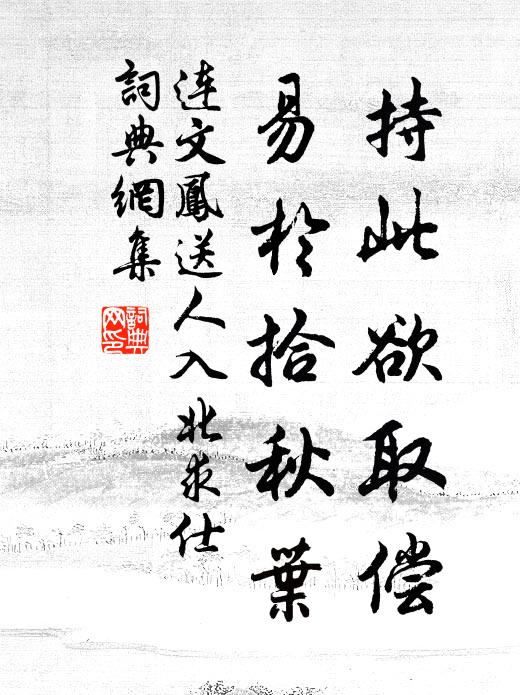 持此欲取偿
易於拾秋葉
连文鳳送人入北求仕
詞典網集
詞典网印